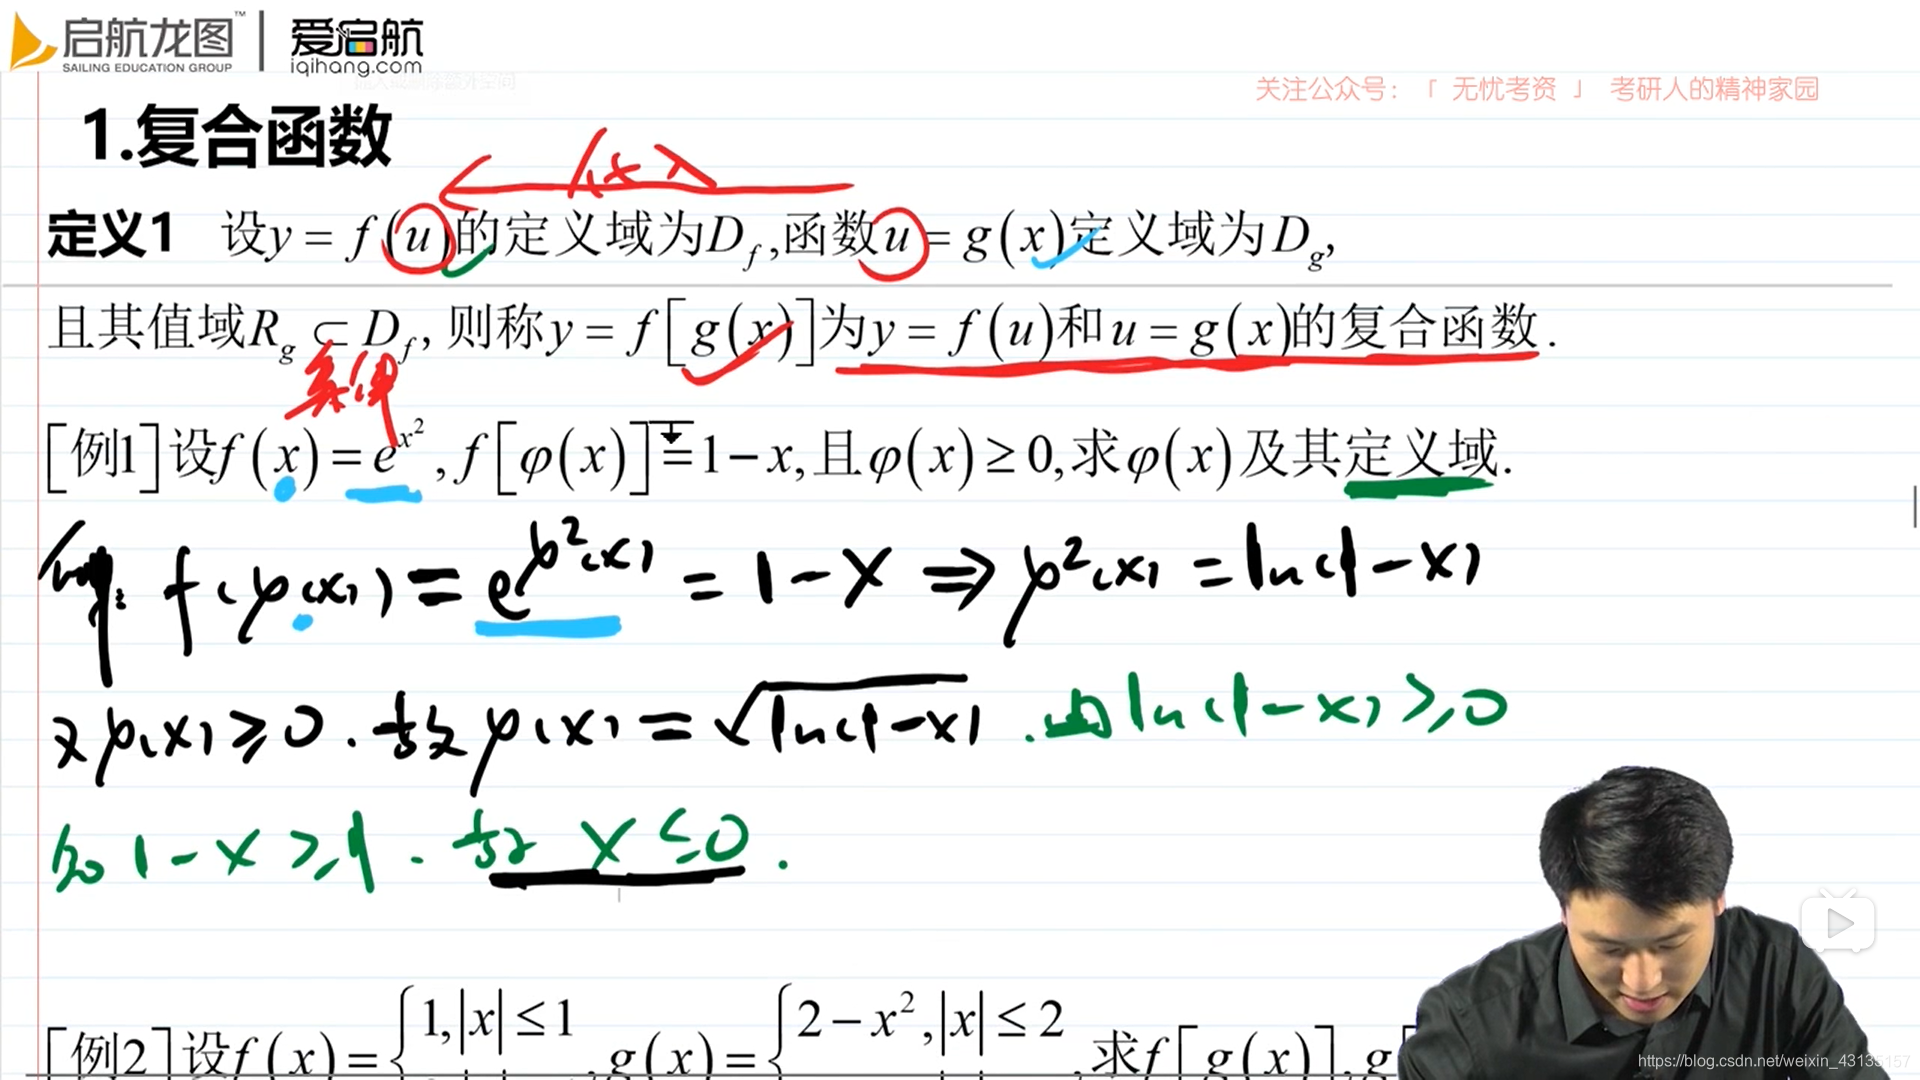 启航龙图™ | 爱启航
SAILING EDUCATION GROUP iqihang.com
关注公众号：「 无忧考资 」 考研人的精神家园
1.复合函数
代入
定义1 设y = f(u)的定义域为D_f,函数u = g(x)定义域为D_g,
且其值域R_g ⊂ D_f, 则称y = f[g(x)]为y = f(u)和u = g(x)的复合函数.
[例1]设f(x) = e^{x^2}, f[φ(x)] = 1 − x, 且φ(x) ≥ 0, 求φ(x)及其定义域.
f(φ(x)) = e^{φ^2(x)} = 1 − x ⇒ φ^2(x) = ln(1 − x)
又φ(x) ≥ 0. 故φ(x) = √ln(1 − x) . 由ln(1 − x) ≥ 0
知 1 − x ≥ 1 . 故 x ≤ 0 .
[例2]设f(x) = { 1, |x| ≤ 1 , g(x) = { 2 − x^2, |x| ≤ 2 , 求f[g(x)], g[
https://blog.csdn.net/weixin_43135157